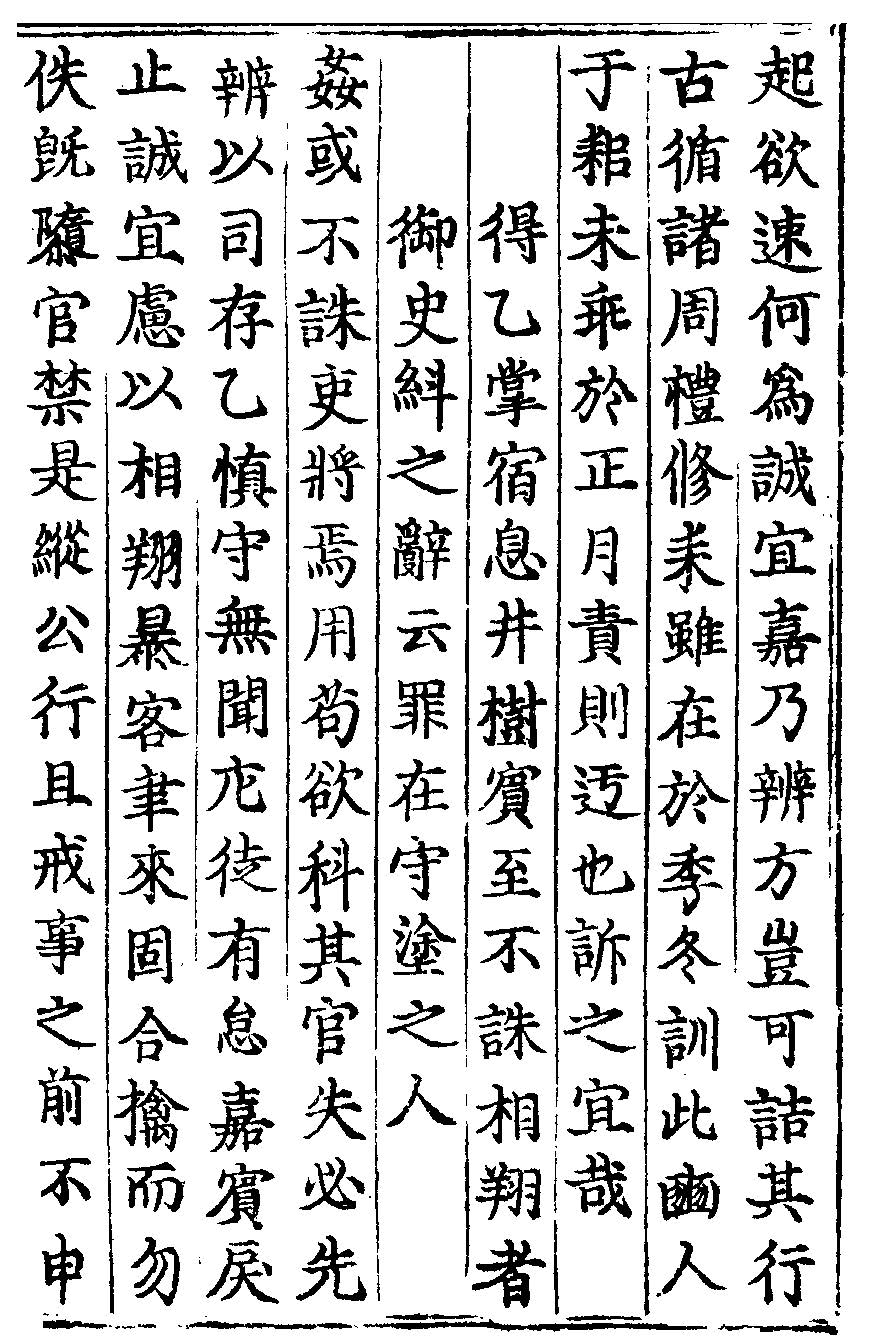 起欲速何爲誠宜嘉乃辨方豈可詰其行
古循諸周禮修耒雖在於季冬訓此豳人
于耜未乖於正月責則迃也訴之宜哉
得乙掌宿息井樹賓至不誅相翔者
御史糾之辭云罪在守塗之人
姦或不誅吏將焉用苟欲科其官失必先
辨以司存乙慎守無聞庀徒有怠嘉賓戾
止誠宜慮以相翔暴客聿來固合擒而勿
佚旣隳官禁是縱公行且戒事之前不申